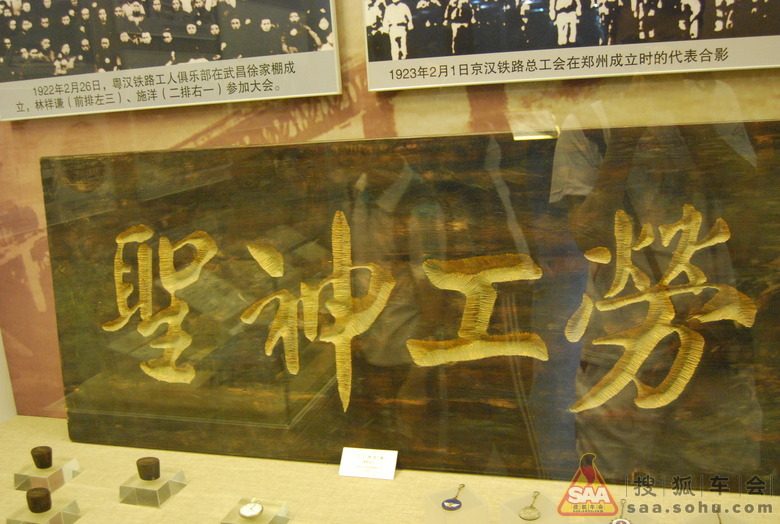 1922年2月26日，粤汉铁路工人俱乐部在武昌徐家棚成
立，林祥谦（前排左三）、施洋（二排右一）参加大会。
1923年2月1日京汉铁路总工会在郑州成立时的代表合影
勞工神聖
SAA
搜狐车会
搜狐车会
saa.sohu.com